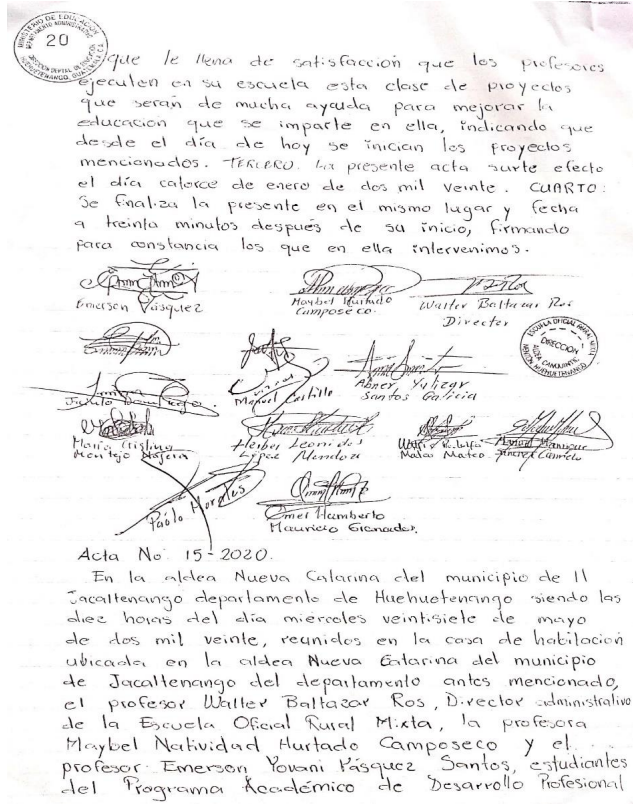 MINISTERIO DE EDUCACION
20
HUEHUETENANGO, GUATEMALA, C.A.
que le llena de satisfacción que los profesores
ejecuten en su escuela esta clase de proyectos
que serán de mucha ayuda para mejorar la
educación que se imparte en ella, indicando que
desde el día de hoy se inician los proyectos
mencionados. TERCERO. La presente acta surte efecto
el día catorce de enero de dos mil veinte. CUARTO:
Se finaliza la presente en el mismo lugar y fecha
a treinta minutos después de su inicio, firmando
para constancia los que en ella intervenimos.
Emerson Vásquez
Maybel Hurtado
Camposeco.
Walter Baltazar Ros
Director
ESCUELA OFICIAL RURAL MIXTA
DIRECCION
HUEHUETENANGO
Manuel Castillo
Abner Yulizar
Santos Galicia
María Cristina
Montejo
Heiber Leonides
López Mendoza
Mateo
Pablo Morales
Omer Humberto
Mauricio Granados.
Acta No. 15-2020.
En la aldea Nueva Catarina del municipio de
Jacaltenango departamento de Huehuetenango siendo las
diez horas del día miercoles veintisiete de mayo
de dos mil veinte, reunidos en la casa de habitación
ubicada en la aldea Nueva Catarina del municipio
de Jacaltenango del departamento antes mencionado,
el profesor Walter Baltazar Ros, Director administrativo
de la Escuela Oficial Rural Mixta, la profesora
Maybel Natividad Hurtado Camposeco y el
profesor Emerson Yovani Vásquez Santos, estudiantes
del Programa Académico de Desarrollo Profesional